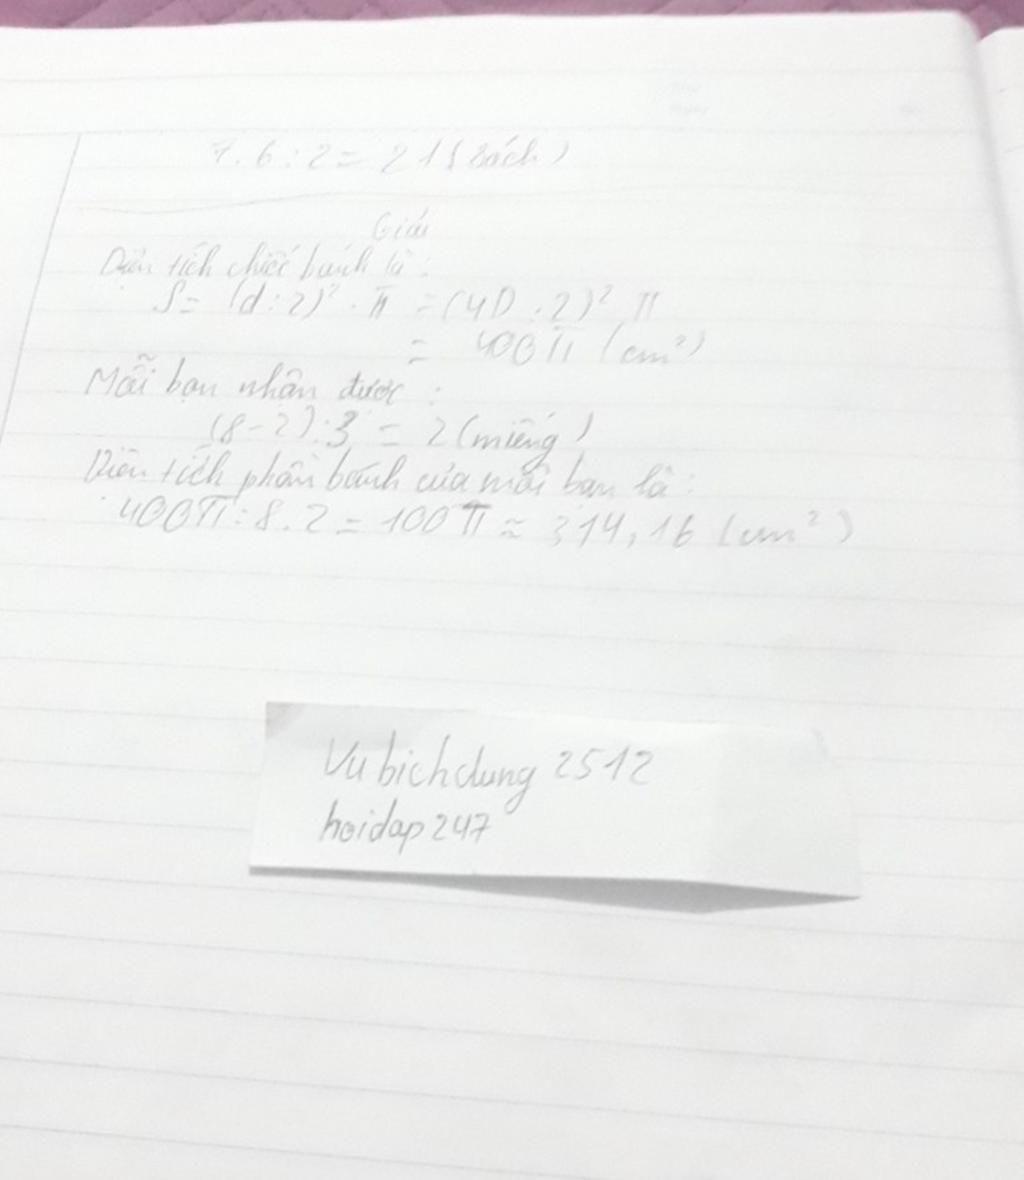 7.6:2 = 21 (sách)
Giải
Diện tích chiếc bánh là:
S = (d:2)² . π = (40:2)² π
= 400π (cm²)
Mỗi bạn nhận được:
(8-2):3 = 2 (miếng)
Diện tích phần bánh của mỗi bạn là:
400π:8.2 = 100π ≈ 314,16 (cm²)
Vubichdung 2512
hoidap247